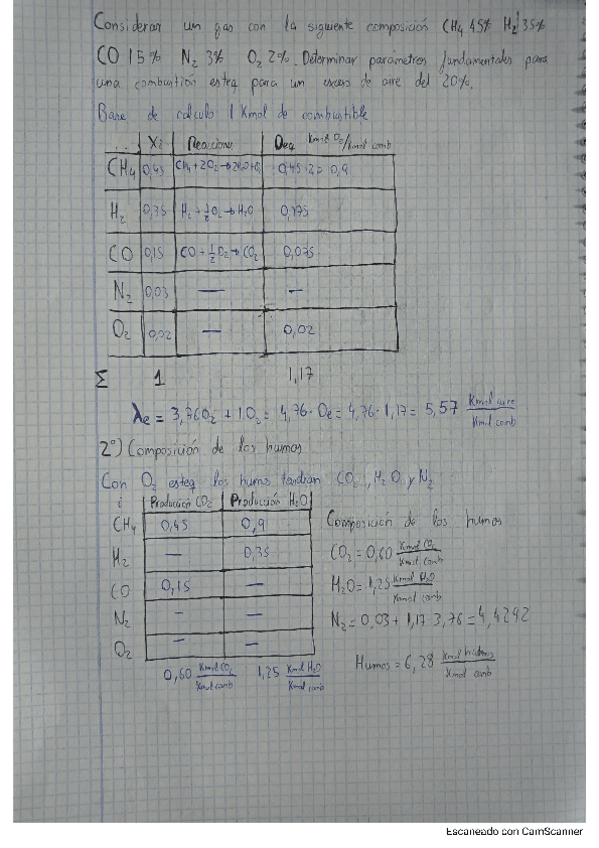 Considerar un gas con la siguiente composición CH4 45% H2 35%
CO 15% N2 3% O2 2%. Determinar parámetros fundamentales para
una combustión esteq para un exceso de aire del 20%.
Base de calculo 1 Kmol de combustible
... Xi Reacciones Oeq Kmol O2/Kmol comb
CH4 0,45 CH4+2O2→ 0,45·2= 0,9
H2 0,35 H2+½O2→H2O 0,175
CO 0,15 CO+½O2→CO2 0,075
N2 0,03 — —
O2 0,02 — 0,02
Σ 1 1,17
λe = 3,76O2 + 1O2 = 4,76·Oe = 4,76·1,17 = 5,57 Kmol aire/Kmol comb
2º) Composición de los humos
Con O2 esteq los humos tendrían CO2, H2O y N2
i Producción CO2 Producción H2O
CH4 0,45 0,9
H2 — 0,35
CO 0,15 —
N2 — —
O2 — —
0,60 Kmol CO2/Kmol comb 1,25 Kmol H2O/Kmol comb
Composición de los humos
CO2 = 0,60 Kmol CO2/Kmol comb
H2O = 1,25 Kmol H2O/Kmol comb
N2 = 0,03 + 1,17·3,76 = 4,4292
Humos = 6,28 Kmol humos/Kmol comb
Escaneado con CamScanner